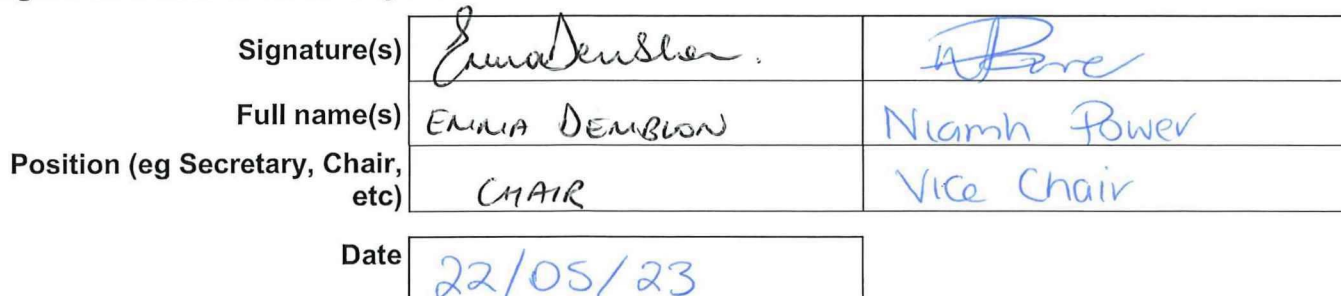 Signature(s)
Full name(s) EMMA DEMBLON Niamh Power
Position (eg Secretary, Chair,
etc) CHAIR Vice Chair
Date 22/05/23